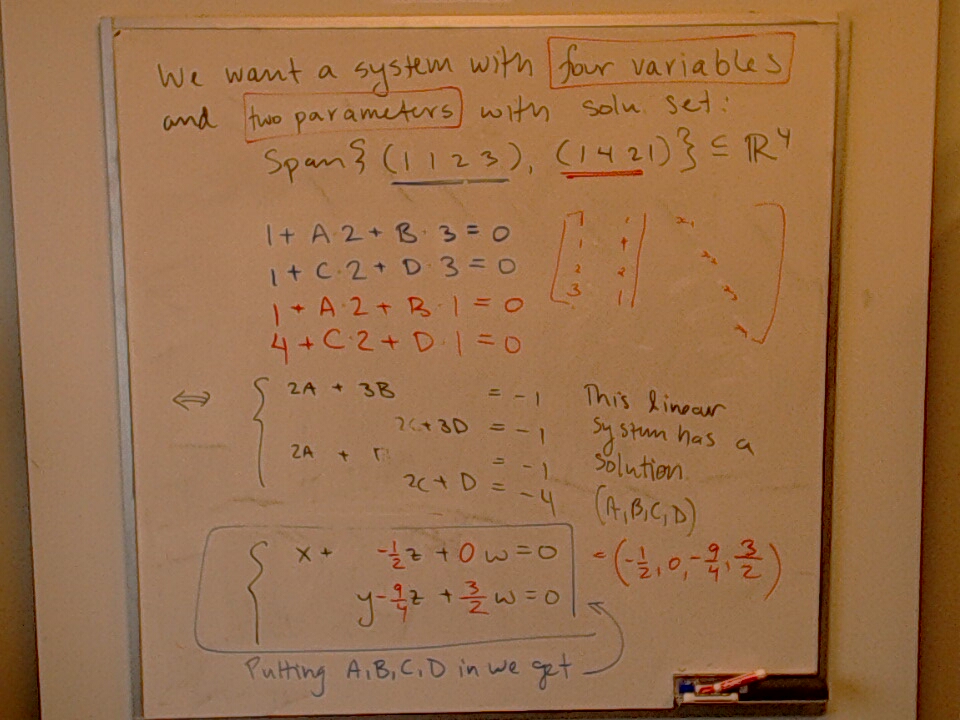 We want a system with four variables
and two parameters with soln set:
Span{(1 1 2 3), (1 4 2 1)} ⊆ ℝ⁴
1 + A·2 + B·3 = 0
1 + C·2 + D·3 = 0
1 + A·2 + B·1 = 0
4 + C·2 + D·1 = 0
1 1 x₁
1 4 x₂
2 2 x₃
3 1
⇔ { 2A + 3B = -1
2C + 3D = -1
2A + = -1
2C + D = -4
This linear
system has a
solution
(A,B,C,D)
= (-1/2, 0, -9/4, 3/2)
{ x + -1/2 z + 0 w = 0
y -9/4 z + 3/2 w = 0
Putting A,B,C,D in we get